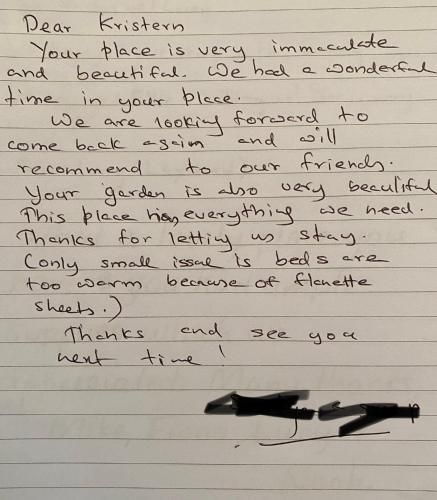 Dear Kristern
Your place is very immaculate
and beautiful. We had a wonderful
time in your place.
We are looking forward to
come back again and will
recommend to our friends.
Your garden is also very beautiful
This place has everything we need.
Thanks for letting us stay.
(only small issue is beds are
too warm because of flanette
sheets.)
Thanks and see you
next time!